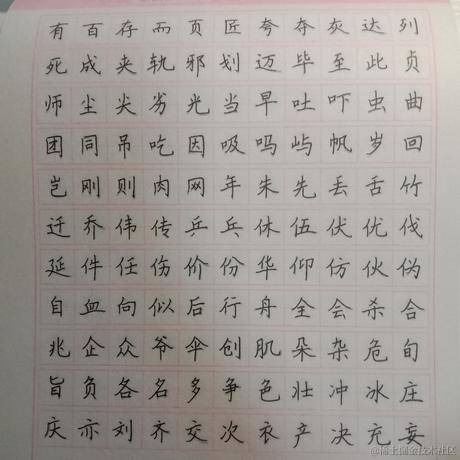 有百存而页匠夸夺灰达列
死成夹轨邪划迈毕至此贞
师尘尖劣光当早吐吓虫曲
团同吊吃因吸吗屿帆岁回
岂刚则肉网年朱先丢舌竹
迁乔伟传乒乓休伍伏优伐
延件任伤价份华仰仿伙伪
自血向似后行舟全会杀合
兆企众爷伞创肌朵杂危旬
旨负各名多争色壮冲冰庄
庆亦刘齐交次衣产决充妄
@稀土掘金技术社区